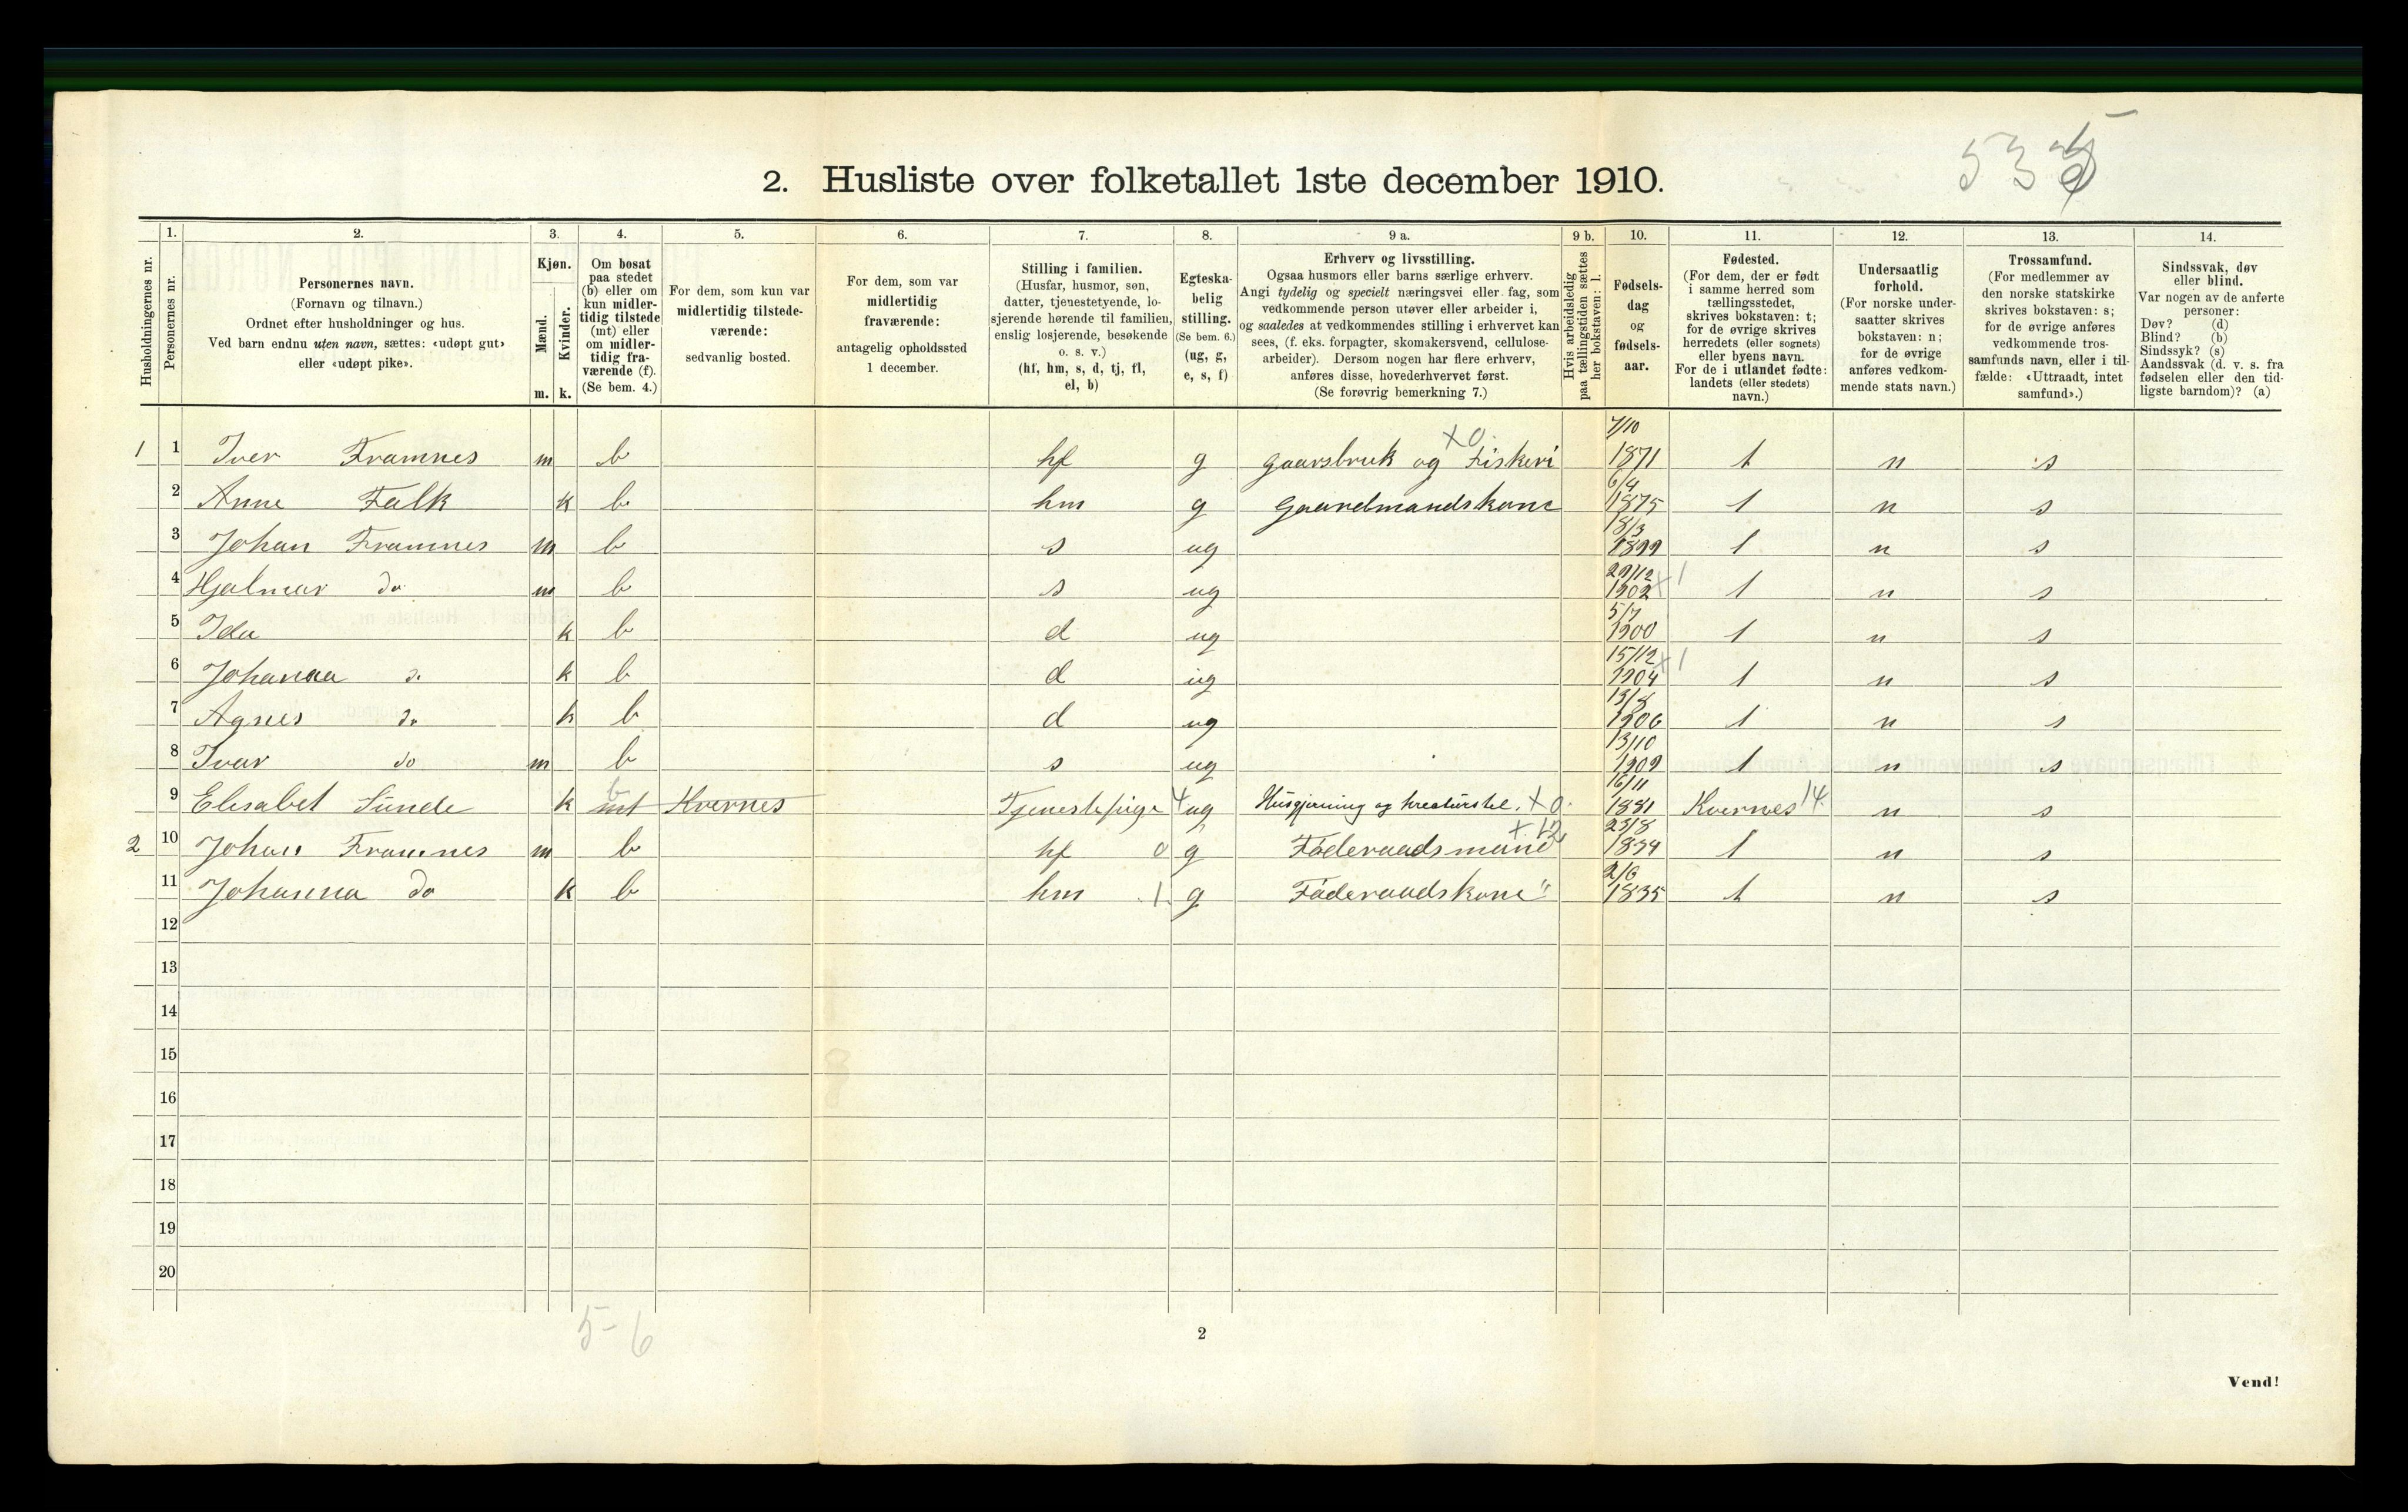 535
2. Husliste over folketallet 1ste december 1910.
Husholdningernes nr.
1.
Personernes nr.
2.
Personernes navn.
(Fornavn og tilnavn.)
Ordnet efter husholdninger og hus.
Ved barn endnu uten navn, sættes: «udøpt gut»
eller «udøpt pike».
3.
Kjøn.
Mænd.
Kvinder.
m. k.
4.
Om bosat
paa stedet
(b) eller om
kun midler-
tidig tilstede
(mt) eller
om midler-
tidig fra-
værende (f).
(Se bem. 4.)
5.
For dem, som kun var
midlertidig tilstede-
værende:
sedvanlig bosted.
6.
For dem, som var
midlertidig
fraværende:
antagelig opholdssted
1 december.
7.
Stilling i familien.
(Husfar, husmor, søn,
datter, tjenestetyende, lo-
sjerende hørende til familien,
enslig losjerende, besøkende
o. s. v.)
(hf, hm, s, d, tj, fl,
el, b)
8.
Egteska-
belig
stilling.
(Se bem. 6.)
(ug, g,
e, s, f)
9 a.
Erhverv og livsstilling.
Ogsaa husmors eller barns særlige erhverv.
Angi tydelig og specielt næringsvei eller fag, som
vedkommende person utøver eller arbeider i,
og saaledes at vedkommendes stilling i erhvervet kan
sees, (f. eks. forpagter, skomakersvend, cellulose-
arbeider). Dersom nogen har flere erhverv,
anføres disse, hovederhvervet først.
(Se forøvrig bemerkning 7.)
9 b.
Hvis arbeidsledig
paa tællingstiden sættes
her bokstaven: l.
10.
Fødsels-
dag
og
fødsels-
aar.
11.
Fødested.
(For dem, der er født
i samme herred som
tællingsstedet,
skrives bokstaven: t;
for de øvrige skrives
herredets (eller sognets)
eller byens navn.
For de i utlandet fødte:
landets (eller stedets)
navn.)
12.
Undersaatlig
forhold.
(For norske under-
saatter skrives
bokstaven: n;
for de øvrige
anføres vedkom-
mende stats navn.)
13.
Trossamfund.
(For medlemmer av
den norske statskirke
skrives bokstaven: s;
for de øvrige anføres
vedkommende tros-
samfunds navn, eller i til-
fælde: «Uttraadt, intet
samfund».)
14.
Sindssvak, døv
eller blind.
Var nogen av de anførte
personer:
Døv? (d)
Blind? (b)
Sindssyk? (s)
Aandssvak (d. v. s. fra
fødselen eller den tid-
ligste barndom)? (a)
1 1 Iver Framnes m b hf g gaarsbruk og Fiskeri x0 7/10 1871 t n s
2 Anne Falk k b hm g Gaardmandskone 6/4 1875 t n s
3 Johan Framnes m b s ug 18/3 1899 t n s
4 Hjalmar do m b s ug 29/12 1902 x1 t n s
5 Ida k b d ug 5/7 1900 t n s
6 Johanna do k b d ug 15/12 1904 x1 t n s
7 Agnes do k b d ug 13/8 1906 t n s
8 Ivar do m b s ug 13/10 1909 t n s
9 Elisabet Sunde k mt b Kvernes Tjenestepige 4 ug Husgjerning og kreaturstel. x0. 16/11 1881 Kvernes 14 n s
2 10 Johan Framnes m b hf 0 g Føderaadsmand x12 23/8 1834 t n s
11 Johanna do k b hm 1 g Føderaadskone " 2/6 1835 t n s
12
13
14
15
16
17
18
19
20
5-6
2
Vend!